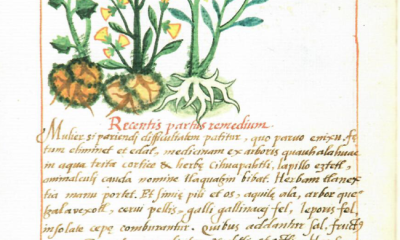 Recentis partus remedium.
Mulier si pariendi difficultatem patitur, quo paruo enixu fe
tum eliminet et edat, medicinam ex arboris quauhalahuac
in aqua trita cortice & herba cihuapahtli, lapillo eztetl,
animalculi cauda nomine tlaquatzin bibat. Herbam tlanex
tia manu portet. Et simię pili et os, aquilę ala, arbor que
tzalhuexotl, cerui pellis, galli gallinacej fel, leporis fel,
insolate cepę comburantur. Quibus addantur sal, fruct